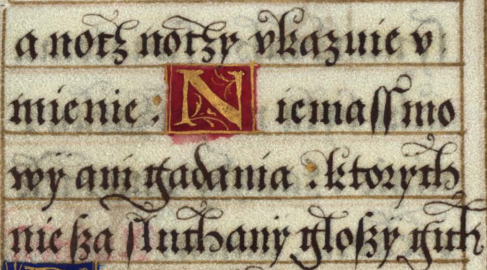 a notz notzy vkazuie v
mienie : Niemaſſ mo
wÿ ani gadania : ktorych
nie ſza ſluchanÿ gloſzy gich